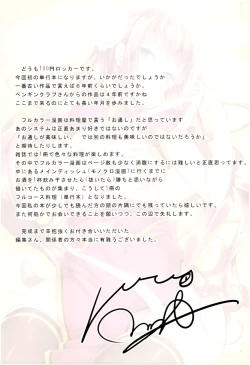 どうも!100円ロッカーです。
今回初の単行本になりますが、いかがだったでしょうか
一番古い作品で言えば6年前くらいでしょうか。
ペンギンクラブさんからの作品は4年前ですかね
ここまで来るのにとても長い年月を歩みました。
フルカラー漫画は料理屋で言う「お通し」だと思っています
あのシステムは正直あまり好きではないのですが
「お通しが美味しい。 では別の料理も美味しいのではないだろうか」
と期待したりします。
雑誌では1冊で色々な料理が楽しめます。
その中でフルカラー漫画はページ数も少なく満腹にするには難しいと正直思ってます。
中にあるメインディッシュ(モノクロ漫画)に行くまでに
お酒を1杯飲み干させたら(抜いたら)勝ちと思いながら
描いてたものが集まり、こうして1冊の
フルコース料理(単行本)となりました。
今回私の本が少しでも読んだ方の頭の片隅にでも残っていたら嬉しいです。
また何処かでお会いできることを願いつつ、この辺で失礼します。
完成まで辛抱強くお付き合いいただいた
編集さん、関係者の方々本当に有難うございました。